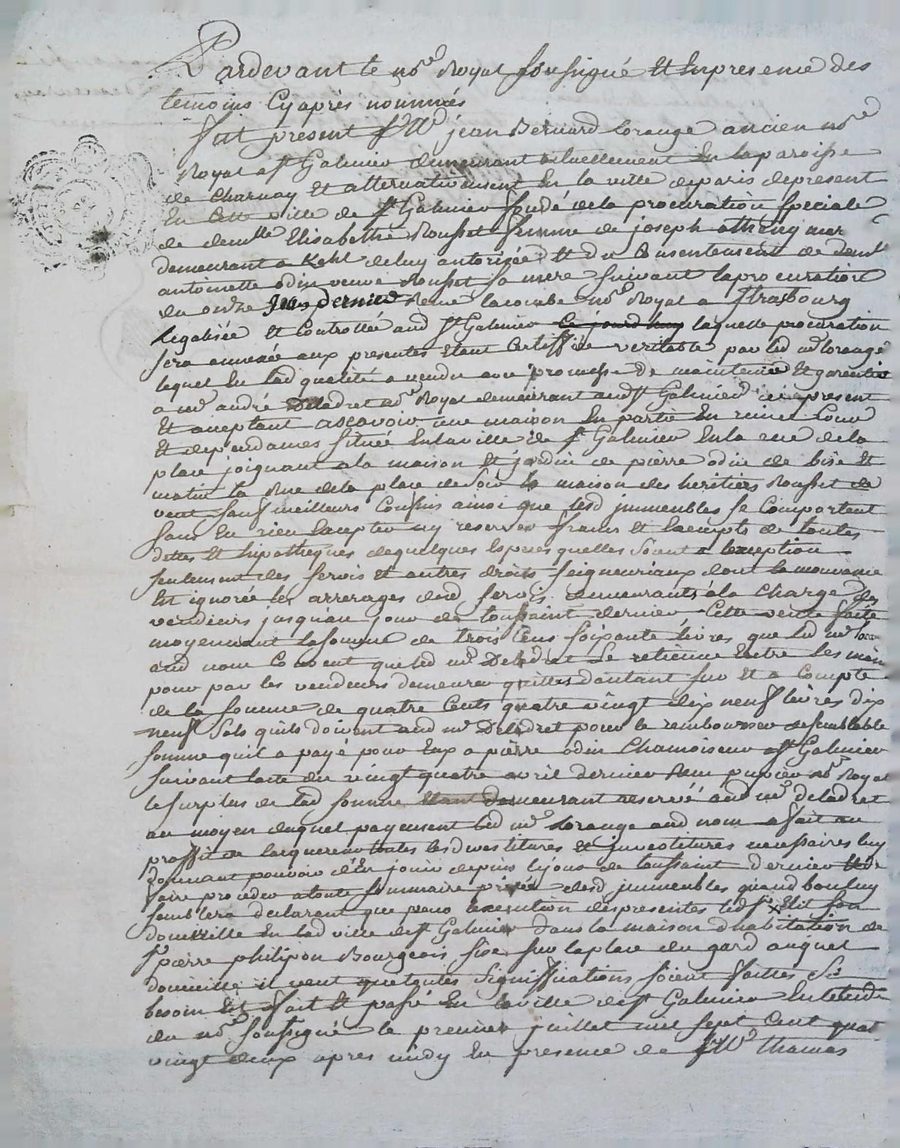 Pardevant le no.re Royal soussigné Et En presence des
temoins Cyaprès nommés
fut présent Jean Bernard Lorange ancien no.re
Royal a St Galmier demeurant actuellement En la paroisse
de Charnay Et alternativement En la ville de paris de present
En Cette ville de St Galmier fondé de la procuration speciale
de demlle Elisabethe Rousset femme de joseph mar
demeurant a Kehl de luy autorisée Et du Consentement de deml
antoinette odin veuve Rousset sa mere suivant la procuration
du onze dernier Reçue lacombe no.re Royal a Strasbourg
legalisée et Controllée aud St Galmier ce jourd'huy laquelle procuration
sera annexée aux presentes Etant Certiffiée veritable par led mr lorange
lequel En lad qualité a vendu avec promesse de maintenir Et garentir
a mr andré Deladret no.re Royal demeurant aud St Galmier icy present
Et aceptant ascavoir une maison En partie En ruine Cour
Et dependances située En la ville de St Galmier En la rue de la
place joignant a la maison Et jardin de pierre odin de bise Et
matin la Rue de la place de soir la maison des heritiers Rousset de
vent sauf meilleurs Confins ainsi que lesd immeubles se Comportent
sans En rien Excepter ny reserver francs Et Exempts de toutes
dettes Et hipotheques de quelques Especes quelles soient a lexception
seulement des servis Et autres droits seigneuriaux dont la mouvance
Est ignorée les arrerages desd servis demeurants a la Charge des
vendeurs jusqu'au jour de toussaint dernier Cette vente faite
moyennant la somme de trois Cens soixante livres que led mr
aud nom Consent que led mr Deladret se retienne Entre les main
pour par les vendeurs demeurer quittes dautant sur Et a Compte
de la somme de quatre Cents quatre vingt dix neuf livres dix
neuf sols quils doivent aud mr Deladret pour le rembourser de semblable
somme quil a payé pour Eux a pierre odin Chamoiseur a St Galmier
suivant lacte du vingt quatre avril dernier Reçu no.re Royal
le surplus de lad somme demeurant reservé aud mr deladret
au moyen duquel payement led mr Lorange aud nom a fait au
proffit de lacquereur toutes lesd vestitures Et investitures necessaires luy
donnant pouvoir d'En jouir depuis le jour de toussaint dernier
faire proceder a toute sommaire prisée desd immeubles quand bon luy
semblera declarant que pour lexecution des presentes led Elit son
domicille En lad ville de St Galmier dans la maison dhabitation de
Sr pierre philipon Bourgeois sise sur la place du gard auquel
domicille il veut que toutes significations soient faittes si
besoin Est fait Et passé En la ville de St Galmier En letude
du no.re soussigné le premier juillet mil sept Cent quatre
vingt deux apres midy En presence de thamas